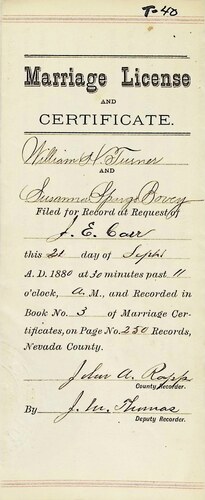 T-40
Marriage License
AND
CERTIFICATE.
William H. Turner
AND
Susanna Bovey
Filed for Record at Request of
J. E. Carr
this 21 day of Sept
A. D. 1880 at 30 minutes past 11
o'clock, A. M., and Recorded in
Book No. 3 of Marriage Cer-
tificates, on Page No. 250 Records,
Nevada County.
John A. Rapp
County Recorder.
By J. M. Thomas
Deputy Recorder.